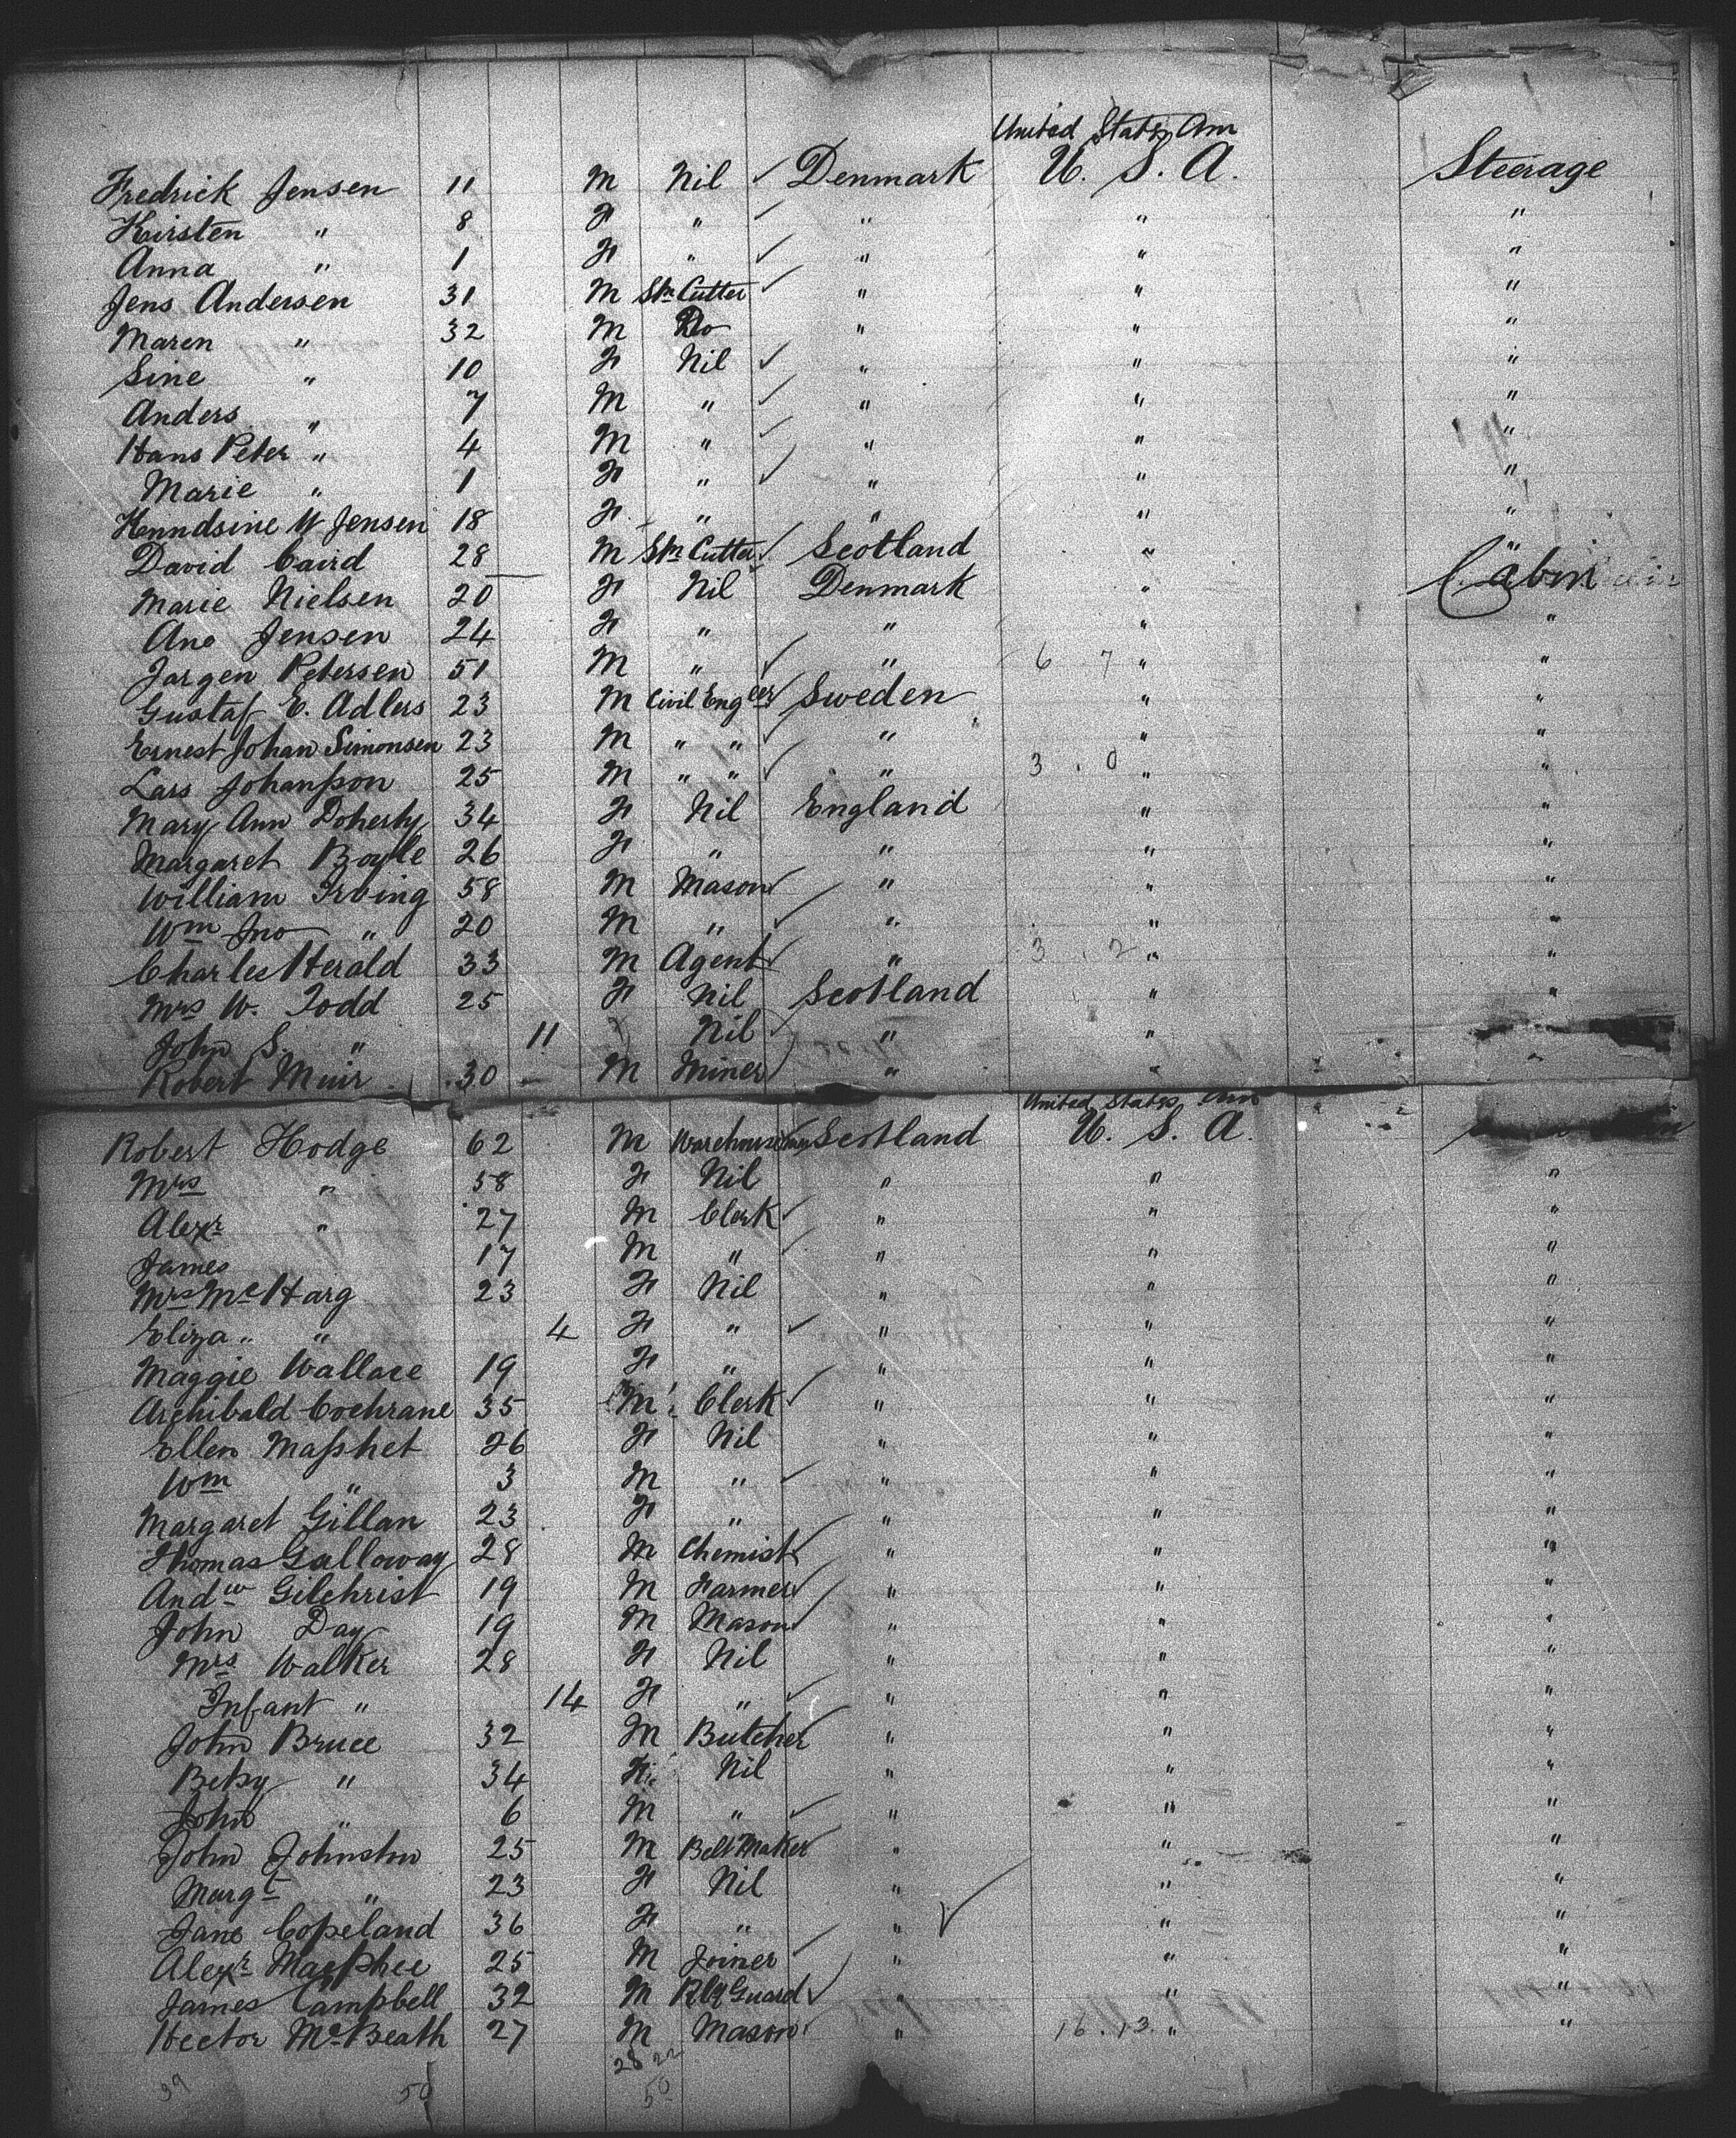 United States Am
Fredrick Jensen 11 M Nil ✓ Denmark U. S. A. Steerage
Kirsten " 8 F " ✓ " " "
Anna " 1 F " ✓ " " "
Jens Andersen 31 M Stn Cutter ✓ " " "
Maren " 32 M Do " " "
Sine " 10 F Nil ✓ " " "
Anders " 7 M " ✓ " " "
Hans Peter " 4 M " ✓ " " "
Marie " 1 F " ✓ " " "
Henndsine M Jensen 18 F " " " "
David Caird 28 M Stn Cutter ✓ Scotland " "
Marie Nielsen 20 F Nil Denmark " Cabin
Ane Jensen 24 F " " " "
Jorgen Petersen 51 M " ✓ " 6 7 " "
Gustaf E. Adlers 23 M Civil Engeer ✓ Sweden " "
Ernest Johan Simonsen 23 M " " ✓ " " "
Lars Johansson 25 M " " ✓ " 3 . 0 " "
Mary Ann Doherty 34 F Nil England " "
Margaret Boyle 26 F " " " "
William Irving 58 M Mason ✓ " " "
Wm Jno " 20 M " ✓ " " "
Charles Herald 33 M Agent ✓ " 3 . 2 " "
Mrs W. Todd 25 F Nil Scotland " "
John S. " 11 Nil " "
Robert Muir 30 M Miner " " "
United States Am
Robert Hodge 62 M Warehouseman ✓ Scotland U. S. A.
Mrs " 58 F Nil " " "
Alexr " 27 M Clerk ✓ " " "
James 17 M " ✓ " " "
Mrs McHarg 23 F Nil " " "
Eliza " " 4 F " ✓ " " "
Maggie Wallace 19 F " " " "
Archibald Cochrane 35 M Clerk ✓ " " "
Ellen Masshet 26 F Nil " " "
Wm " 3 M " ✓ " " "
Margaret Gillan 23 F " " " "
Thomas Galloway 28 M Chemist ✓ " " "
Andw Gilchrist 19 M Farmer ✓ " " "
John Day 19 M Mason ✓ " " "
Mrs Walker 28 F Nil " " "
Infant " 14 F " ✓ " " "
John Bruce 32 M Butcher ✓ " " "
Betsy " 34 F Nil " " "
John " 6 M " ✓ " " "
John Johnston 25 M Belt Maker ✓ " " "
Margt " 23 F Nil " " "
Jane Copeland 36 F " " ✓ " "
Alexr MacPhee 25 M Joiner ✓ " " "
James Campbell 32 M Rly Guard ✓ " " "
Hector McBeath 27 M Mason " 16 . 13 " "
28 22
39 50 50